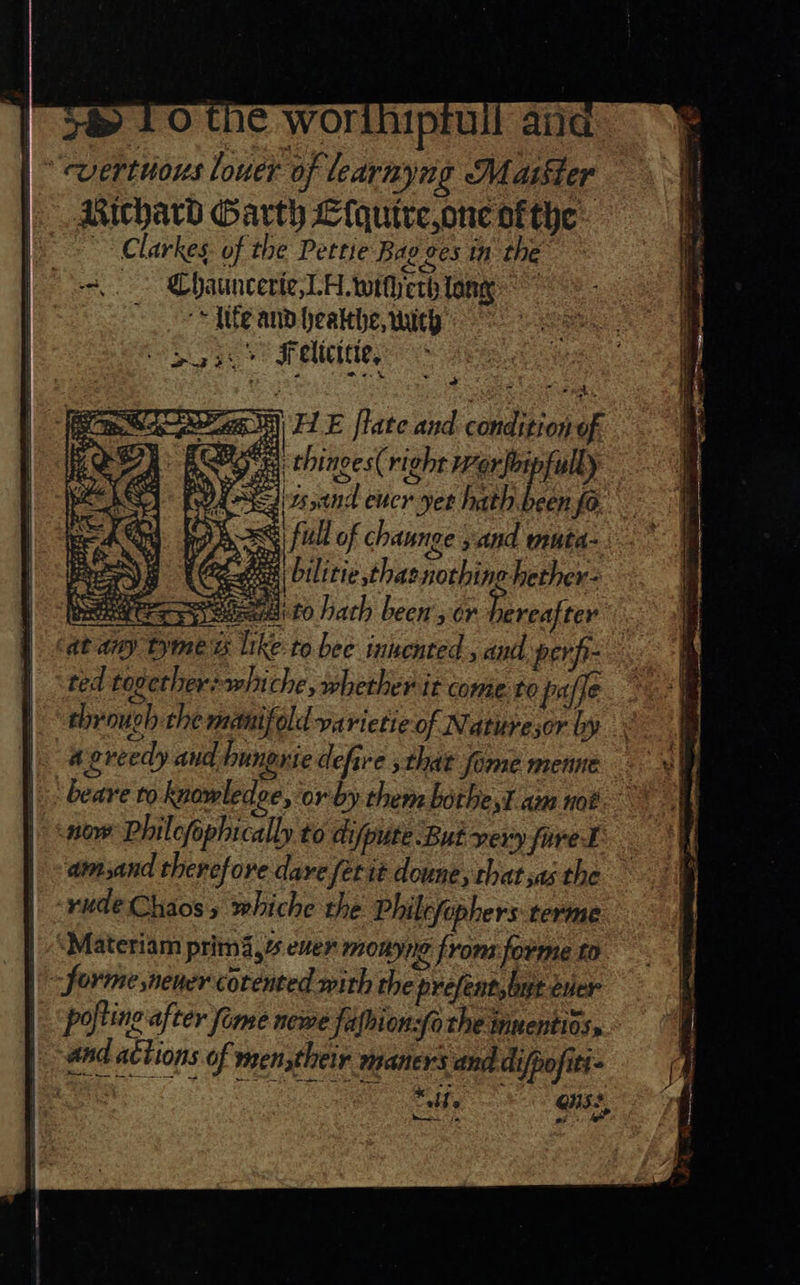 ❧ To the worſhipfull and
vertuous louer of learnyng Maiſter
Richard Garth Eſquire, one of the
Clarkes of the Pettie Bagges in the
Chauncerie, I.H. wiſheth long
life and healthe, with
Felicitie.
THE ſtate and condition of
thinges (right worſhipfully)
is, and euer yet hath been ſo
full of chaunge, and muta-
bilitie, that nothing hether-
to hath been, or hereafter
at any tyme is like to bee inuented, and perfi-
ted together: whiche, whether it come to paſſe
through the manifold varietie of Nature, or by
a greedy and hungrie deſire, that ſome menne
beare to knowledge, or by them bothe, I am not
now Philoſophically to diſpute. But very ſure I
am, and therefore dare ſet it doune, that, as the
rude Chaos, whiche the Philoſophers terme
Materiam primã, is euer mouyng from forme to
forme, neuer cõtented with the preſent, but euer
poſting after ſome newe faſhion: ſo the inuentiõs,
and actions of men, their maners and diſpoſiti-
*.ii. ons,